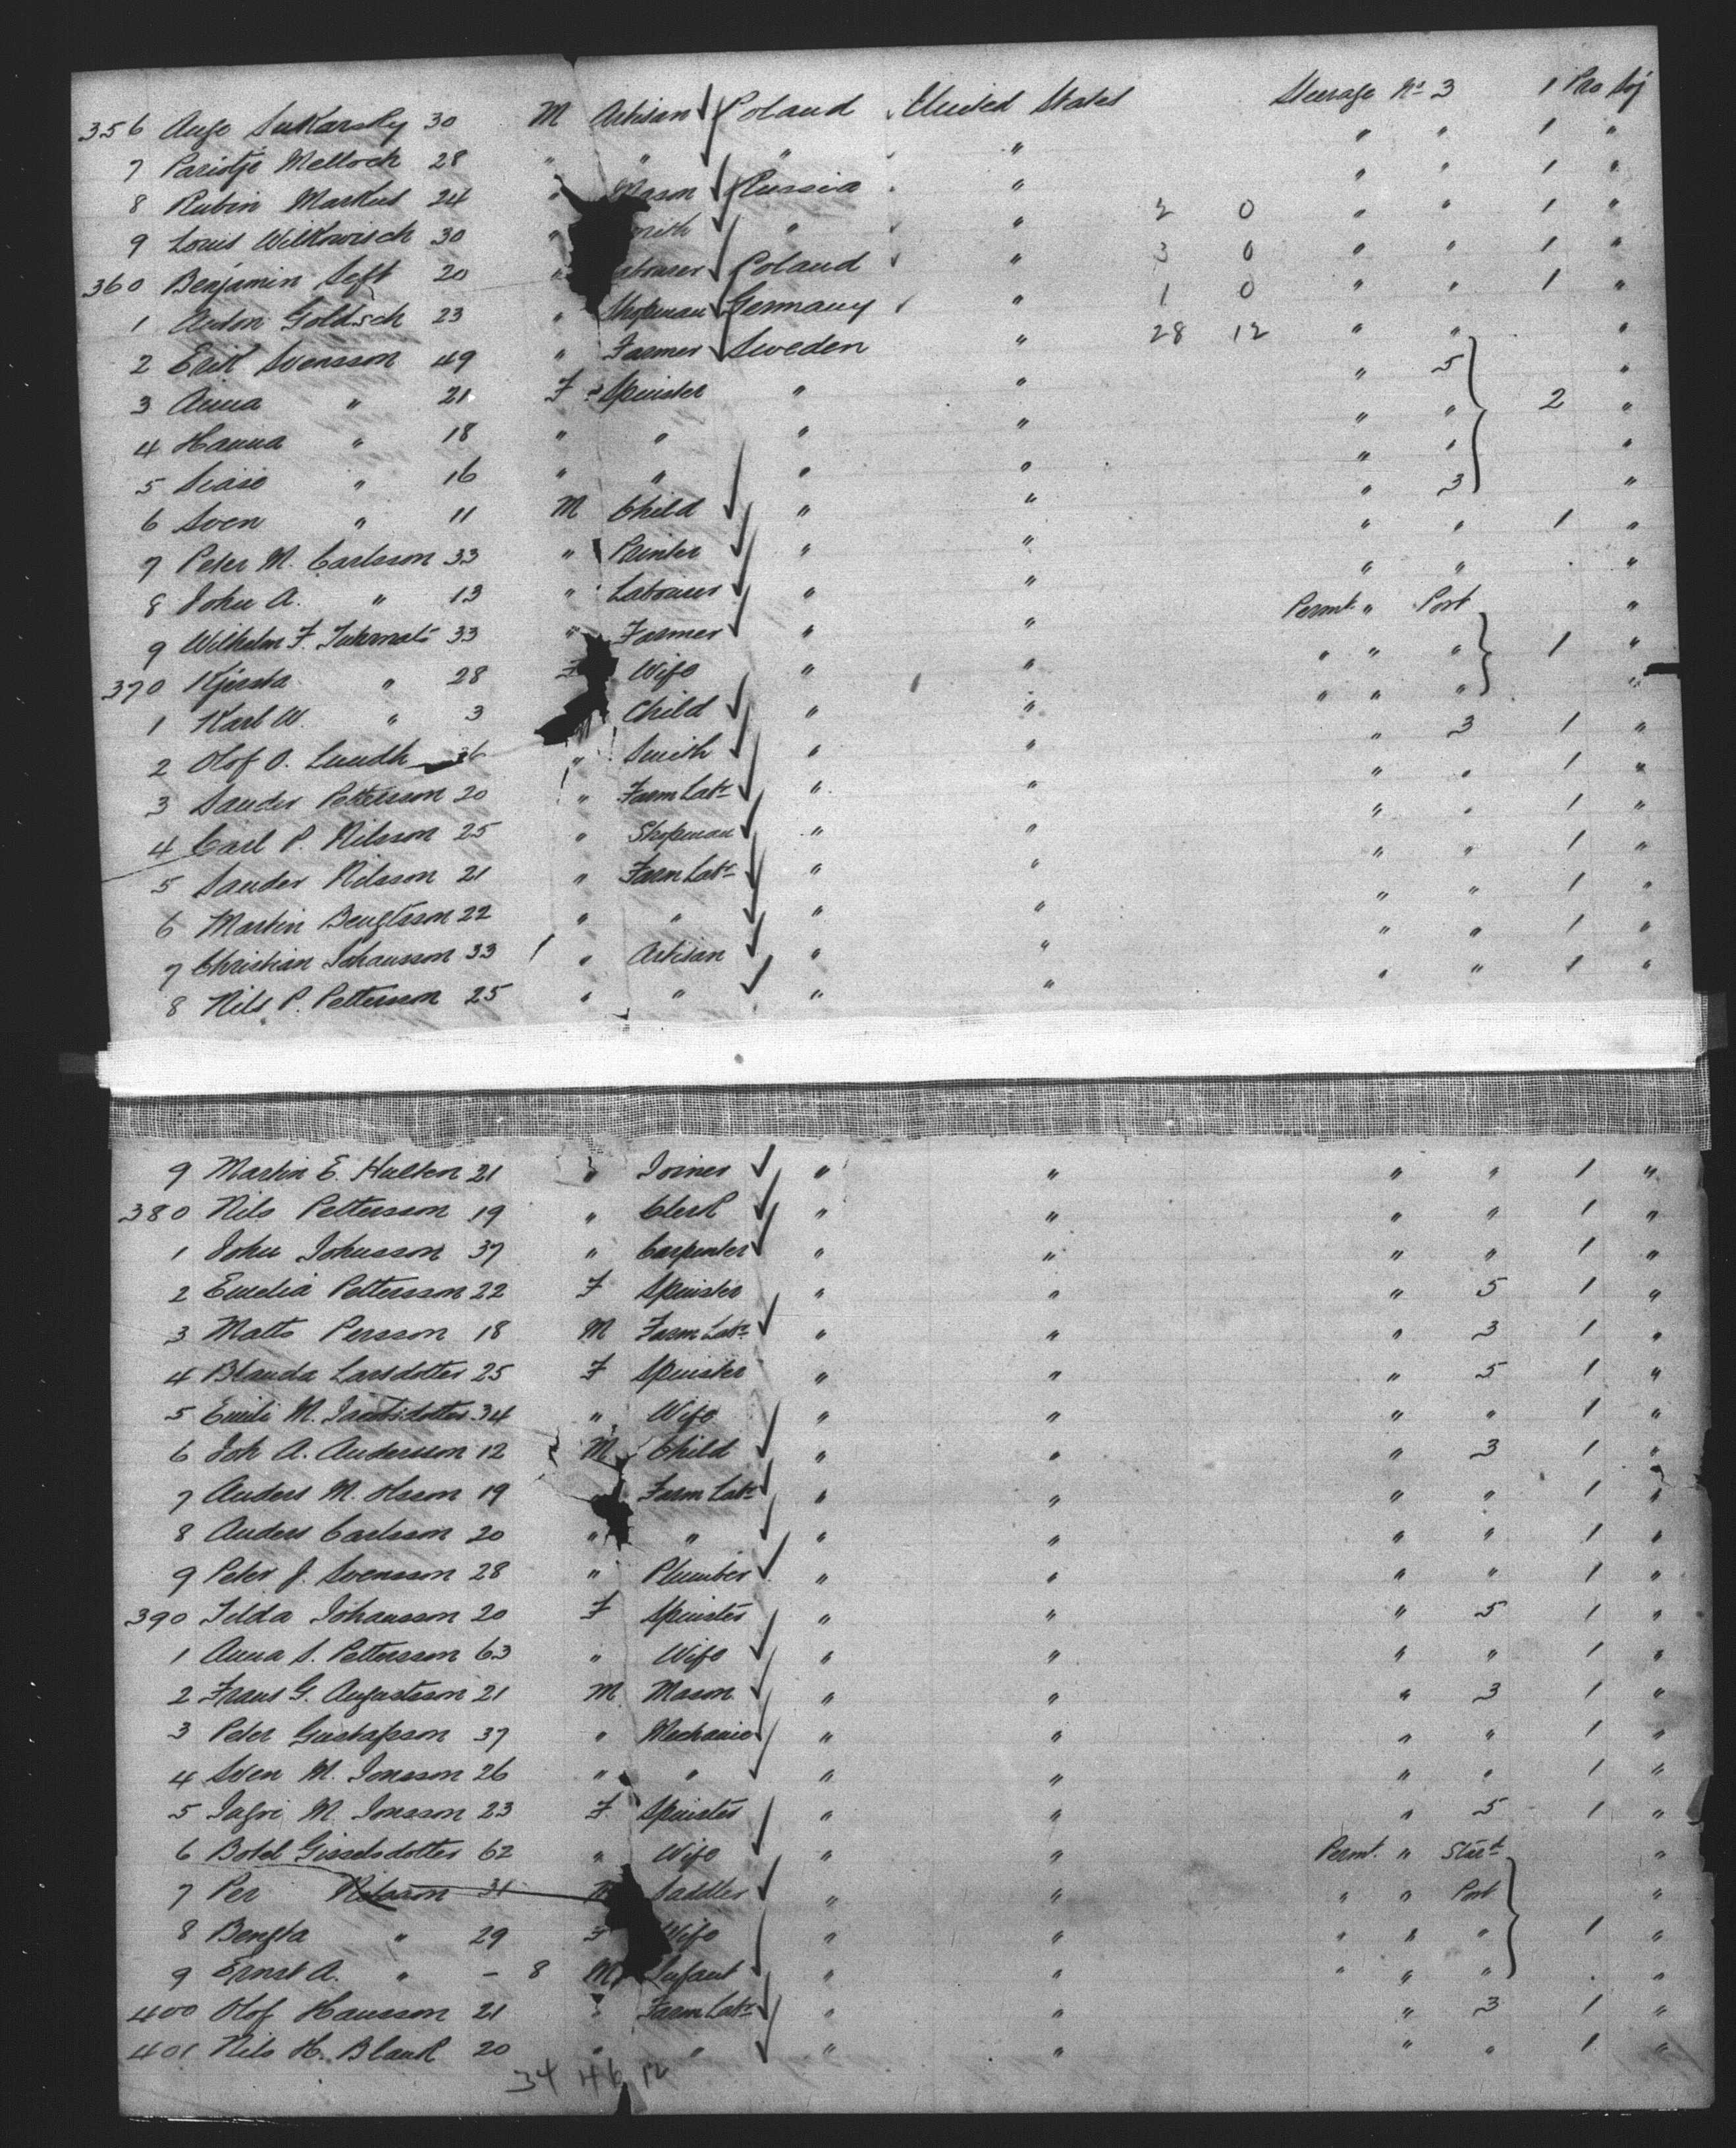 356 Auge Sukarsky 30 M Artisan Poland United States Steerage No 3 1 Pro Soj
7 Paristje Melloch 28 " " " " " " 1 "
8 Rubin Markus 24 " Mason Russia " " " 1 "
9 Louis Wilkowisch 30 " Smith " " 2 0 " " 1 "
360 Benjamin Seft 20 " Labourer Poland " 3 0 " " 1 "
1 Anton Goldsch 23 " Shopman Germany " 1 0 " " 1 "
2 Erik Svensson 49 " Farmer Sweden " 28 12 " " "
3 Anna " 21 F Spinster " " " 5 "
4 Hanna " 18 " " " " " " 2 "
5 " 16 " " " " " " "
6 Sven " 11 M Child " " " 3 "
7 Peter M. Carlsson 33 " Painter " " " " 1 "
8 John A. " 13 " Labourer " " " " "
9 Wilhelm F. 33 " Farmer " " Permt. " Port "
370 Kjersta " 28 F Wife " " " " " 1 "
1 Karl W. " 3 Child " " " " " "
2 Olof O. Lundh 26 " Smith " " " 3 1 "
3 Sander Pettersson 20 " Farm Labr " " " " 1 "
4 Carl P. Nilsson 25 " Shopman " " " " 1 "
5 Sander Nilsson 21 " Farm Labr " " " " 1 "
6 Martin Bengtsson 22 " " " " " " 1 "
7 Christian Johansson 33 " Artisan " " " " 1 "
8 Nils P. Pettersson 25 " " " " " " 1 "
9 Martin E. Hulten 21 " Joiner " " " " 1 "
380 Nils Pettersson 19 " Clerk " " " " 1 "
1 John Johnsson 37 " Carpenter " " " " 1 "
2 Emelia Pettersson 22 F Spinster " " " 5 1 "
3 Matts Persson 18 M Farm Labr " " " 3 1 "
4 Blanda Larsdotter 25 F Spinster " " " 5 1 "
5 Emili M. Jacobsdotter 34 " Wife " " " " 1 "
6 Joh A. Andersson 12 M Child " " " 3 1 "
7 Anders M. Olsson 19 Farm Labr " " " " 1 "
8 Anders Carlsson 20 " " " " " " 1 "
9 Peter J. Svensson 28 " Plumber " " " " 1 "
390 Tilda Johansson 20 F Spinster " " " 5 1 "
1 Anna S. Pettersson 63 " Wife " " " " 1 "
2 Frans G. Augustsson 21 M Mason " " " 3 1 "
3 Peter Gustafsson 37 " Mechanic " " " " 1 "
4 Sven M. Jonsson 26 " " " " " " 1 "
5 Ingri M. Jonsson 23 F Spinster " " " 5 1 "
6 Botel Gisselsdotter 62 " Wife " " Permt. " Start "
7 Per Nilsson 31 M Saddler " " " " Port "
8 Bengta " 29 F Wife " " " " " 1 "
9 Ernst A. " - 8 M Infant " " " " " "
400 Olof Hansson 21 " Farm Labr " " " 3 1 "
401 Nils H. Blank 20 " " " " " " 1 "
34 46 12